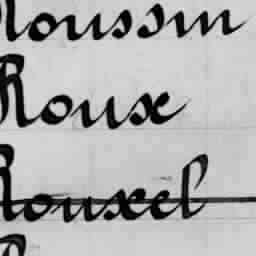 Roussin
Roux
Rouxel